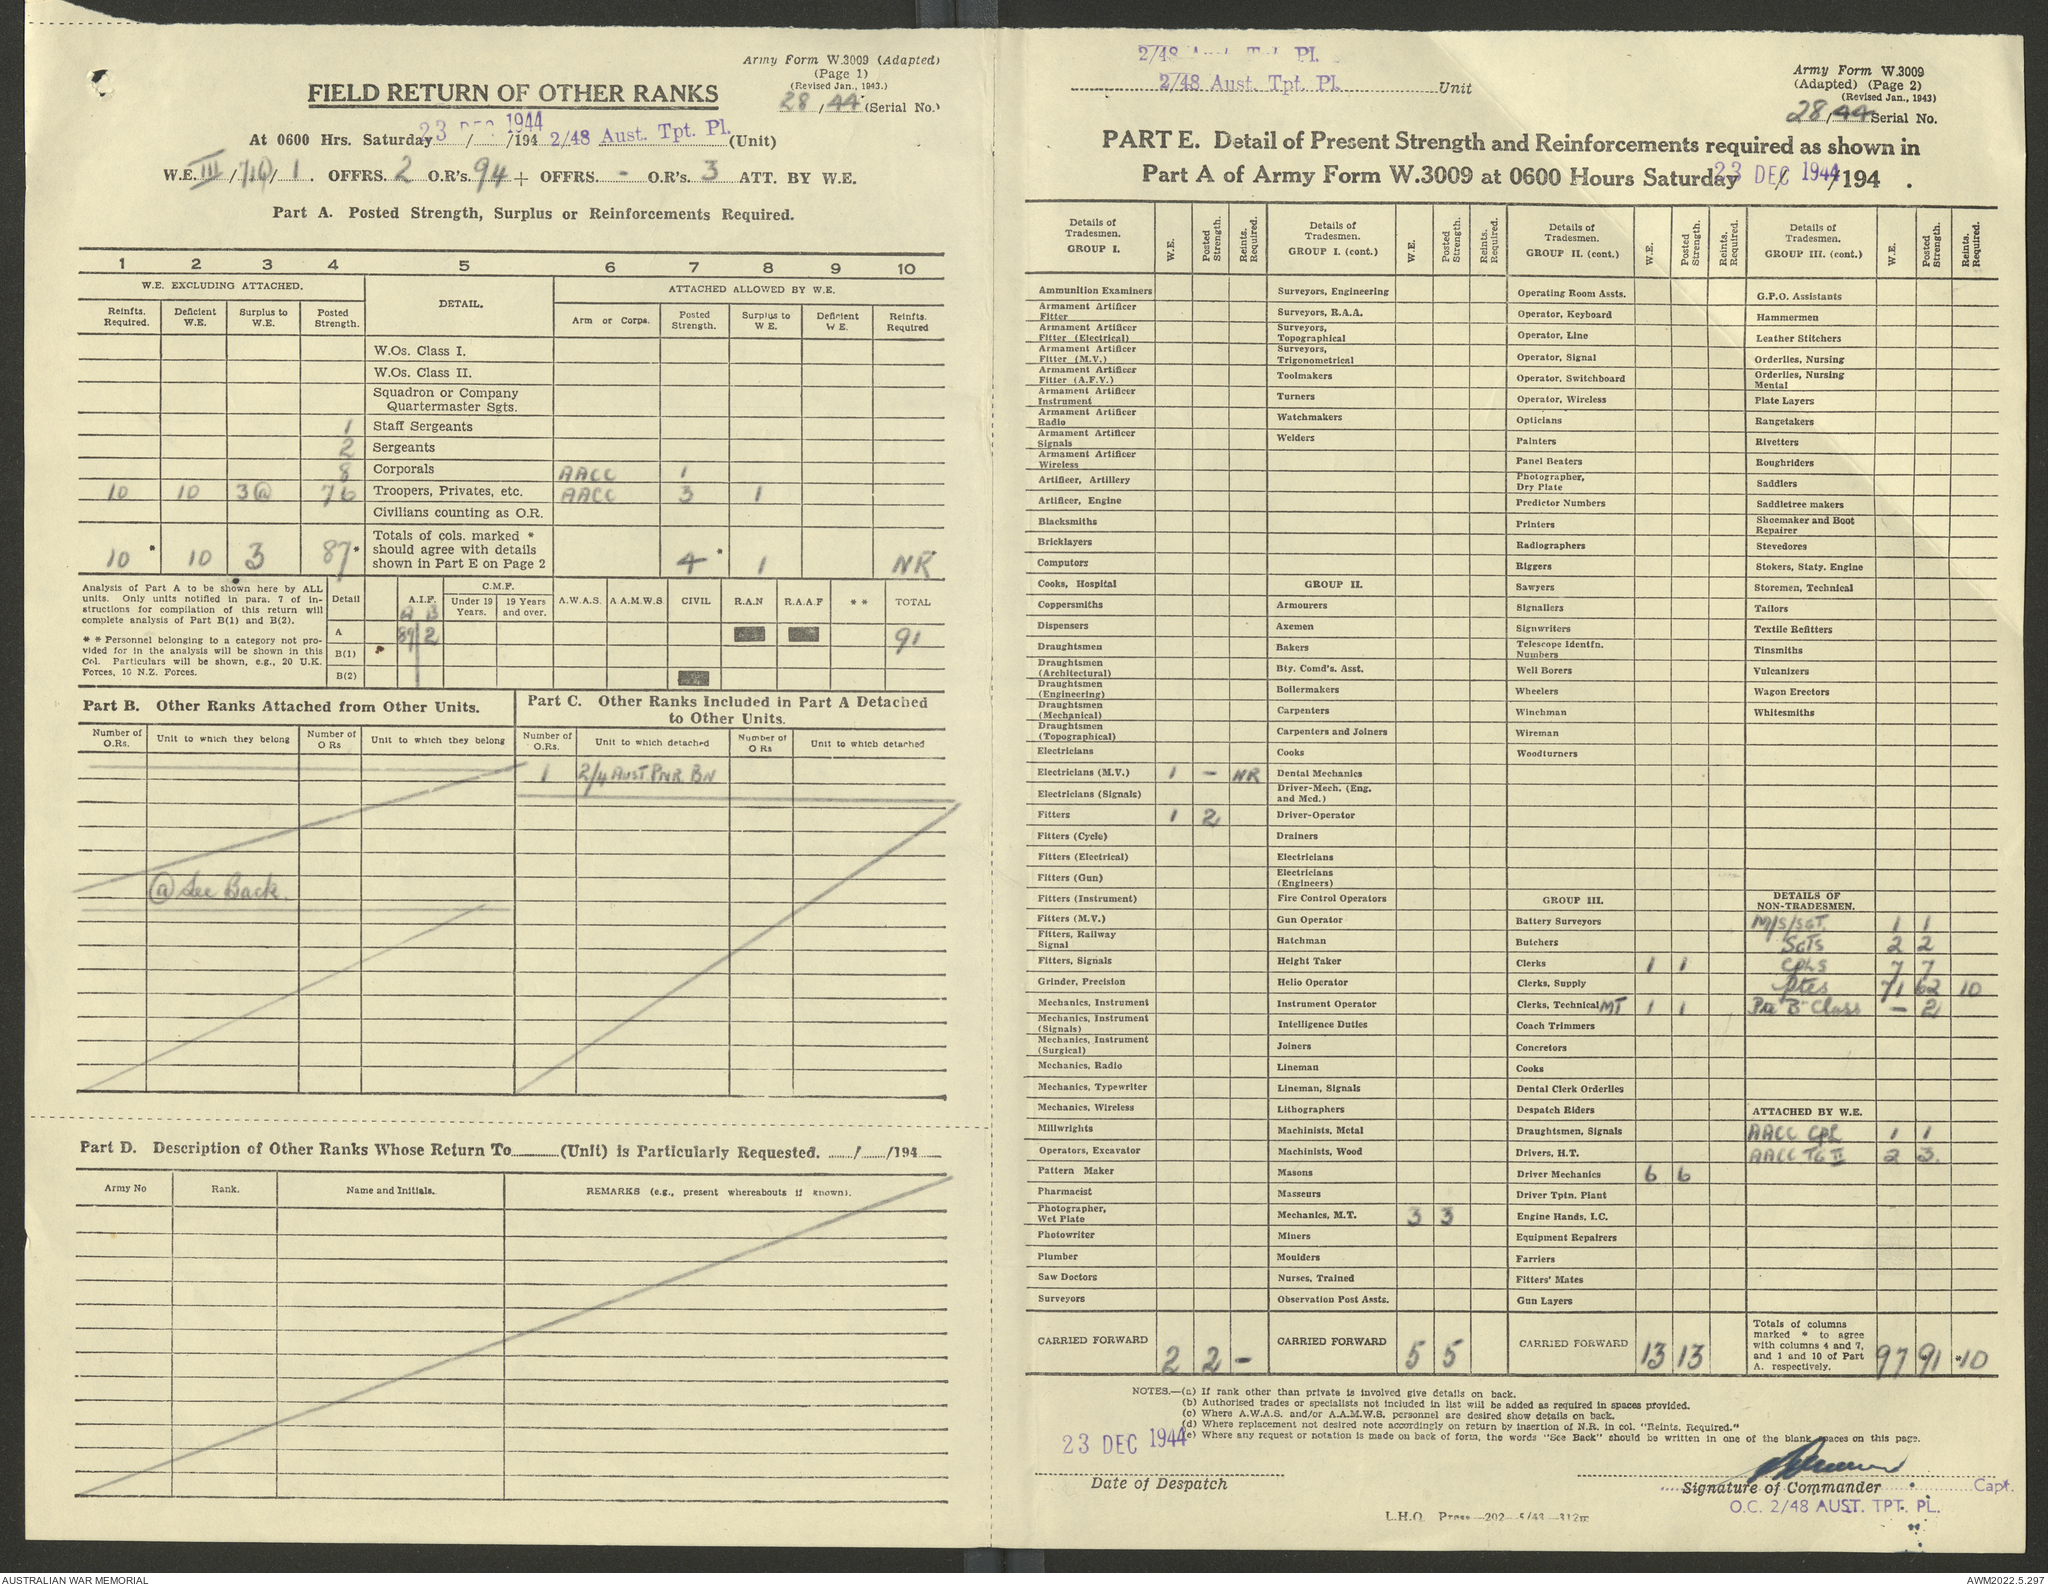 Army Form W.3009 (Adapted)
(Page 1)
(Revised Jan., 1943.)
FIELD RETURN OF OTHER RANKS
28/44 (Serial No.)
At 0600 Hrs. Saturday 23 DEC 1944 / /194 2/48 Aust. Tpt. Pl. (Unit)
W.E. III / / 1 . OFFRS. 2 O.R's. 94 + OFFRS. - O.R's. 3 ATT. BY W.E.
Part A. Posted Strength, Surplus or Reinforcements Required.
1 2 3 4 5 6 7 8 9 10
W.E. EXCLUDING ATTACHED. DETAIL. ATTACHED ALLOWED BY W.E.
Reinfts. Required. Deficient W.E. Surplus to W.E. Posted Strength. Arm or Corps. Posted Strength. Surplus to W E. Deficient W E. Reinfts. Required
W.Os. Class I.
W.Os. Class II.
Squadron or Company
Quartermaster Sgts.
1 Staff Sergeants
2 Sergeants
8 Corporals AACC 1
10 10 3@ 76 Troopers, Privates, etc. AACC 3 1
Civilians counting as O.R.
10* 10 3 87* Totals of cols. marked * should agree with details shown in Part E on Page 2 4* 1 NR*
Analysis of Part A to be shown here by ALL
units. Only units notified in para. 7 of in-
structions for compilation of this return will
complete analysis of Part B(1) and B(2).
* * Personnel belonging to a category not pro-
vided for in the analysis will be shown in this
Col. Particulars will be shown, e.g., 20 U.K.
Forces, 10 N.Z. Forces.
Detail A.I.F. C.M.F. Under 19 Years. 19 Years and over. A.W.A.S. A A.M.W.S CIVIL R.A.N R.A.A F * * TOTAL
A B
A 89 2 91
B(1)
B(2)
Part B. Other Ranks Attached from Other Units.
Part C. Other Ranks Included in Part A Detached
to Other Units.
Number of O.Rs. Unit to which they belong Number of O Rs Unit to which they belong Number of O.Rs. Unit to which detached Number of O Rs Unit to which detached
1 2/4 AUST. PNR. BN
@ See Back.
Part D. Description of Other Ranks Whose Return To (Unit) is Particularly Requested. / /194
Army No Rank. Name and Initials. REMARKS (e.g., present whereabouts if known).
2/48 Pl.
2/48 Aust. Tpt. Pl. Unit
Army Form W.3009
(Adapted) (Page 2)
(Revised Jan., 1943)
28/44 Serial No.
PART E. Detail of Present Strength and Reinforcements required as shown in
Part A of Army Form W.3009 at 0600 Hours Saturday 23 DEC 1944 / /194 .
Details of Tradesmen. GROUP I. W.E. Posted Strength. Reints. Required.
Ammunition Examiners
Armament Artificer Fitter
Armament Artificer Fitter (Electrical)
Armament Artificer Fitter (M.V.)
Armament Artificer Fitter (A.F.V.)
Armament Artificer Instrument
Armament Artificer Radio
Armament Artificer Signals
Armament Artificer Wireless
Artificer, Artillery
Artificer, Engine
Blacksmiths
Bricklayers
Computors
Cooks, Hospital
Coppersmiths
Dispensers
Draughtsmen
Draughtsmen (Architectural)
Draughtsmen (Engineering)
Draughtsmen (Mechanical)
Draughtsmen (Topographical)
Electricians
Electricians (M.V.) 1 - NR
Electricians (Signals)
Fitters 1 2
Fitters (Cycle)
Fitters (Electrical)
Fitters (Gun)
Fitters (Instrument)
Fitters (M.V.)
Fitters, Railway Signal
Fitters, Signals
Grinder, Precision
Mechanics, Instrument
Mechanics, Instrument (Signals)
Mechanics, Instrument (Surgical)
Mechanics, Radio
Mechanics, Typewriter
Mechanics, Wireless
Millwrights
Operators, Excavator
Pattern Maker
Pharmacist
Photographer, Wet Plate
Photowriter
Plumber
Saw Doctors
Surveyors
CARRIED FORWARD 2 2 -
Details of Tradesmen. GROUP I. (cont.) W.E. Posted Strength. Reints. Required.
Surveyors, Engineering
Surveyors, R.A.A.
Surveyors, Topographical
Surveyors, Trigonometrical
Toolmakers
Turners
Watchmakers
Welders
GROUP II.
Armourers
Axemen
Bakers
Bty. Comd's. Asst.
Boilermakers
Carpenters
Carpenters and Joiners
Cooks
Dental Mechanics
Driver-Mech. (Eng. and Med.)
Driver-Operator
Drainers
Electricians
Electricians (Engineers)
Fire Control Operators
Gun Operator
Hatchman
Height Taker
Helio Operator
Instrument Operator
Intelligence Duties
Joiners
Lineman
Lineman, Signals
Lithographers
Machinists, Metal
Machinists, Wood
Masons
Masseurs
Mechanics, M.T. 3 3
Miners
Moulders
Nurses, Trained
Observation Post Assts.
CARRIED FORWARD 5 5
Details of Tradesmen. GROUP II. (cont.) W.E. Posted Strength. Reints. Required.
Operating Room Assts.
Operator, Keyboard
Operator, Line
Operator, Signal
Operator, Switchboard
Operator, Wireless
Opticians
Painters
Panel Beaters
Photographer, Dry Plate
Predictor Numbers
Printers
Radiographers
Riggers
Sawyers
Signallers
Signwriters
Telescope Identfn. Numbers
Well Borers
Wheelers
Winchman
Wireman
Woodturners
GROUP III.
Battery Surveyors
Butchers
Clerks 1 1
Clerks, Supply
Clerks, Technical MT 1 1
Coach Trimmers
Concretors
Cooks
Dental Clerk Orderlies
Despatch Riders
Draughtsmen, Signals
Drivers, H.T.
Driver Mechanics 6 6
Driver Tptn. Plant
Engine Hands, I.C.
Equipment Repairers
Farriers
Fitters' Mates
Gun Layers
CARRIED FORWARD 13 13
Details of Tradesmen. GROUP III. (cont.) W.E. Posted Strength. Reints. Required.
G.P.O. Assistants
Hammermen
Leather Stitchers
Orderlies, Nursing
Orderlies, Nursing Mental
Plate Layers
Rangetakers
Rivetters
Roughriders
Saddlers
Saddletree makers
Shoemaker and Boot Repairer
Stevedores
Stokers, Staty. Engine
Storemen, Technical
Tailors
Textile Refitters
Tinsmiths
Vulcanizers
Wagon Erectors
Whitesmiths
DETAILS OF NON-TRADESMEN.
M/S/SGT. 1 1
SGTS 2 2
CPLS 7 7
Ptes 71 62 10
Pte "B" Class - 2
ATTACHED BY W.E.
AACC CPL 1 1
AACC TG II 2 3.
Totals of columns marked * to agree with columns 4 and 7, and 1 and 10 of Part A. respectively. 97 91 *10
NOTES.—(a) If rank other than private is involved give details on back.
(b) Authorised trades or specialists not included in list will be added as required in spaces provided.
(c) Where A.W.A.S. and/or A.A.M.W.S. personnel are desired show details on back.
(d) Where replacement not desired note accordingly on return by insertion of N.R. in col. "Reints. Required."
(e) Where any request or notation is made on back of form, the words "See Back" should be written in one of the blank spaces on this page.
23 DEC 1944
Date of Despatch
Signature of Commander Capt.
O.C. 2/48 AUST. TPT. PL.
L.H.Q. Press—202—5/43—312m
AUSTRALIAN WAR MEMORIAL
AWM2022.5.297